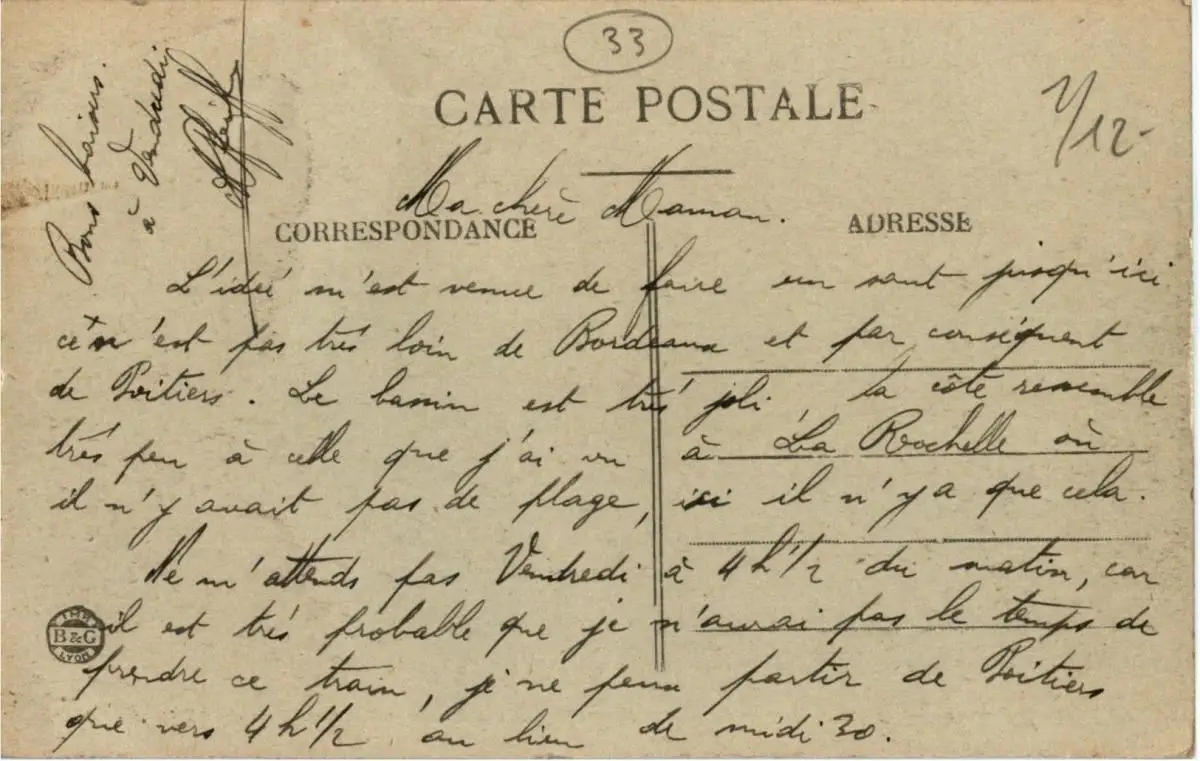 33
CARTE POSTALE
/12-
Ma chère Maman.
CORRESPONDANCE
ADRESSE
L'idée m'est venue de faire un saut jusqu'ici
ce n'est pas très loin de Bordeaux et par conséquent
de Poitiers. Le bassin est très joli, la côte ressemble
très peu à celle que j'ai vu à La Rochelle où
il n'y avait pas de plage, ici il n'y a que cela.
Ne m'attends pas Vendredi à 4h1/2 du matin, car
il est très probable que je n'aurai pas le temps de
prendre ce train, je ne peux partir de Poitiers
que vers 4h1/2 au lieu de midi 30.
Bons baisers.
à Vendredi
IMP.
B & G
LYON